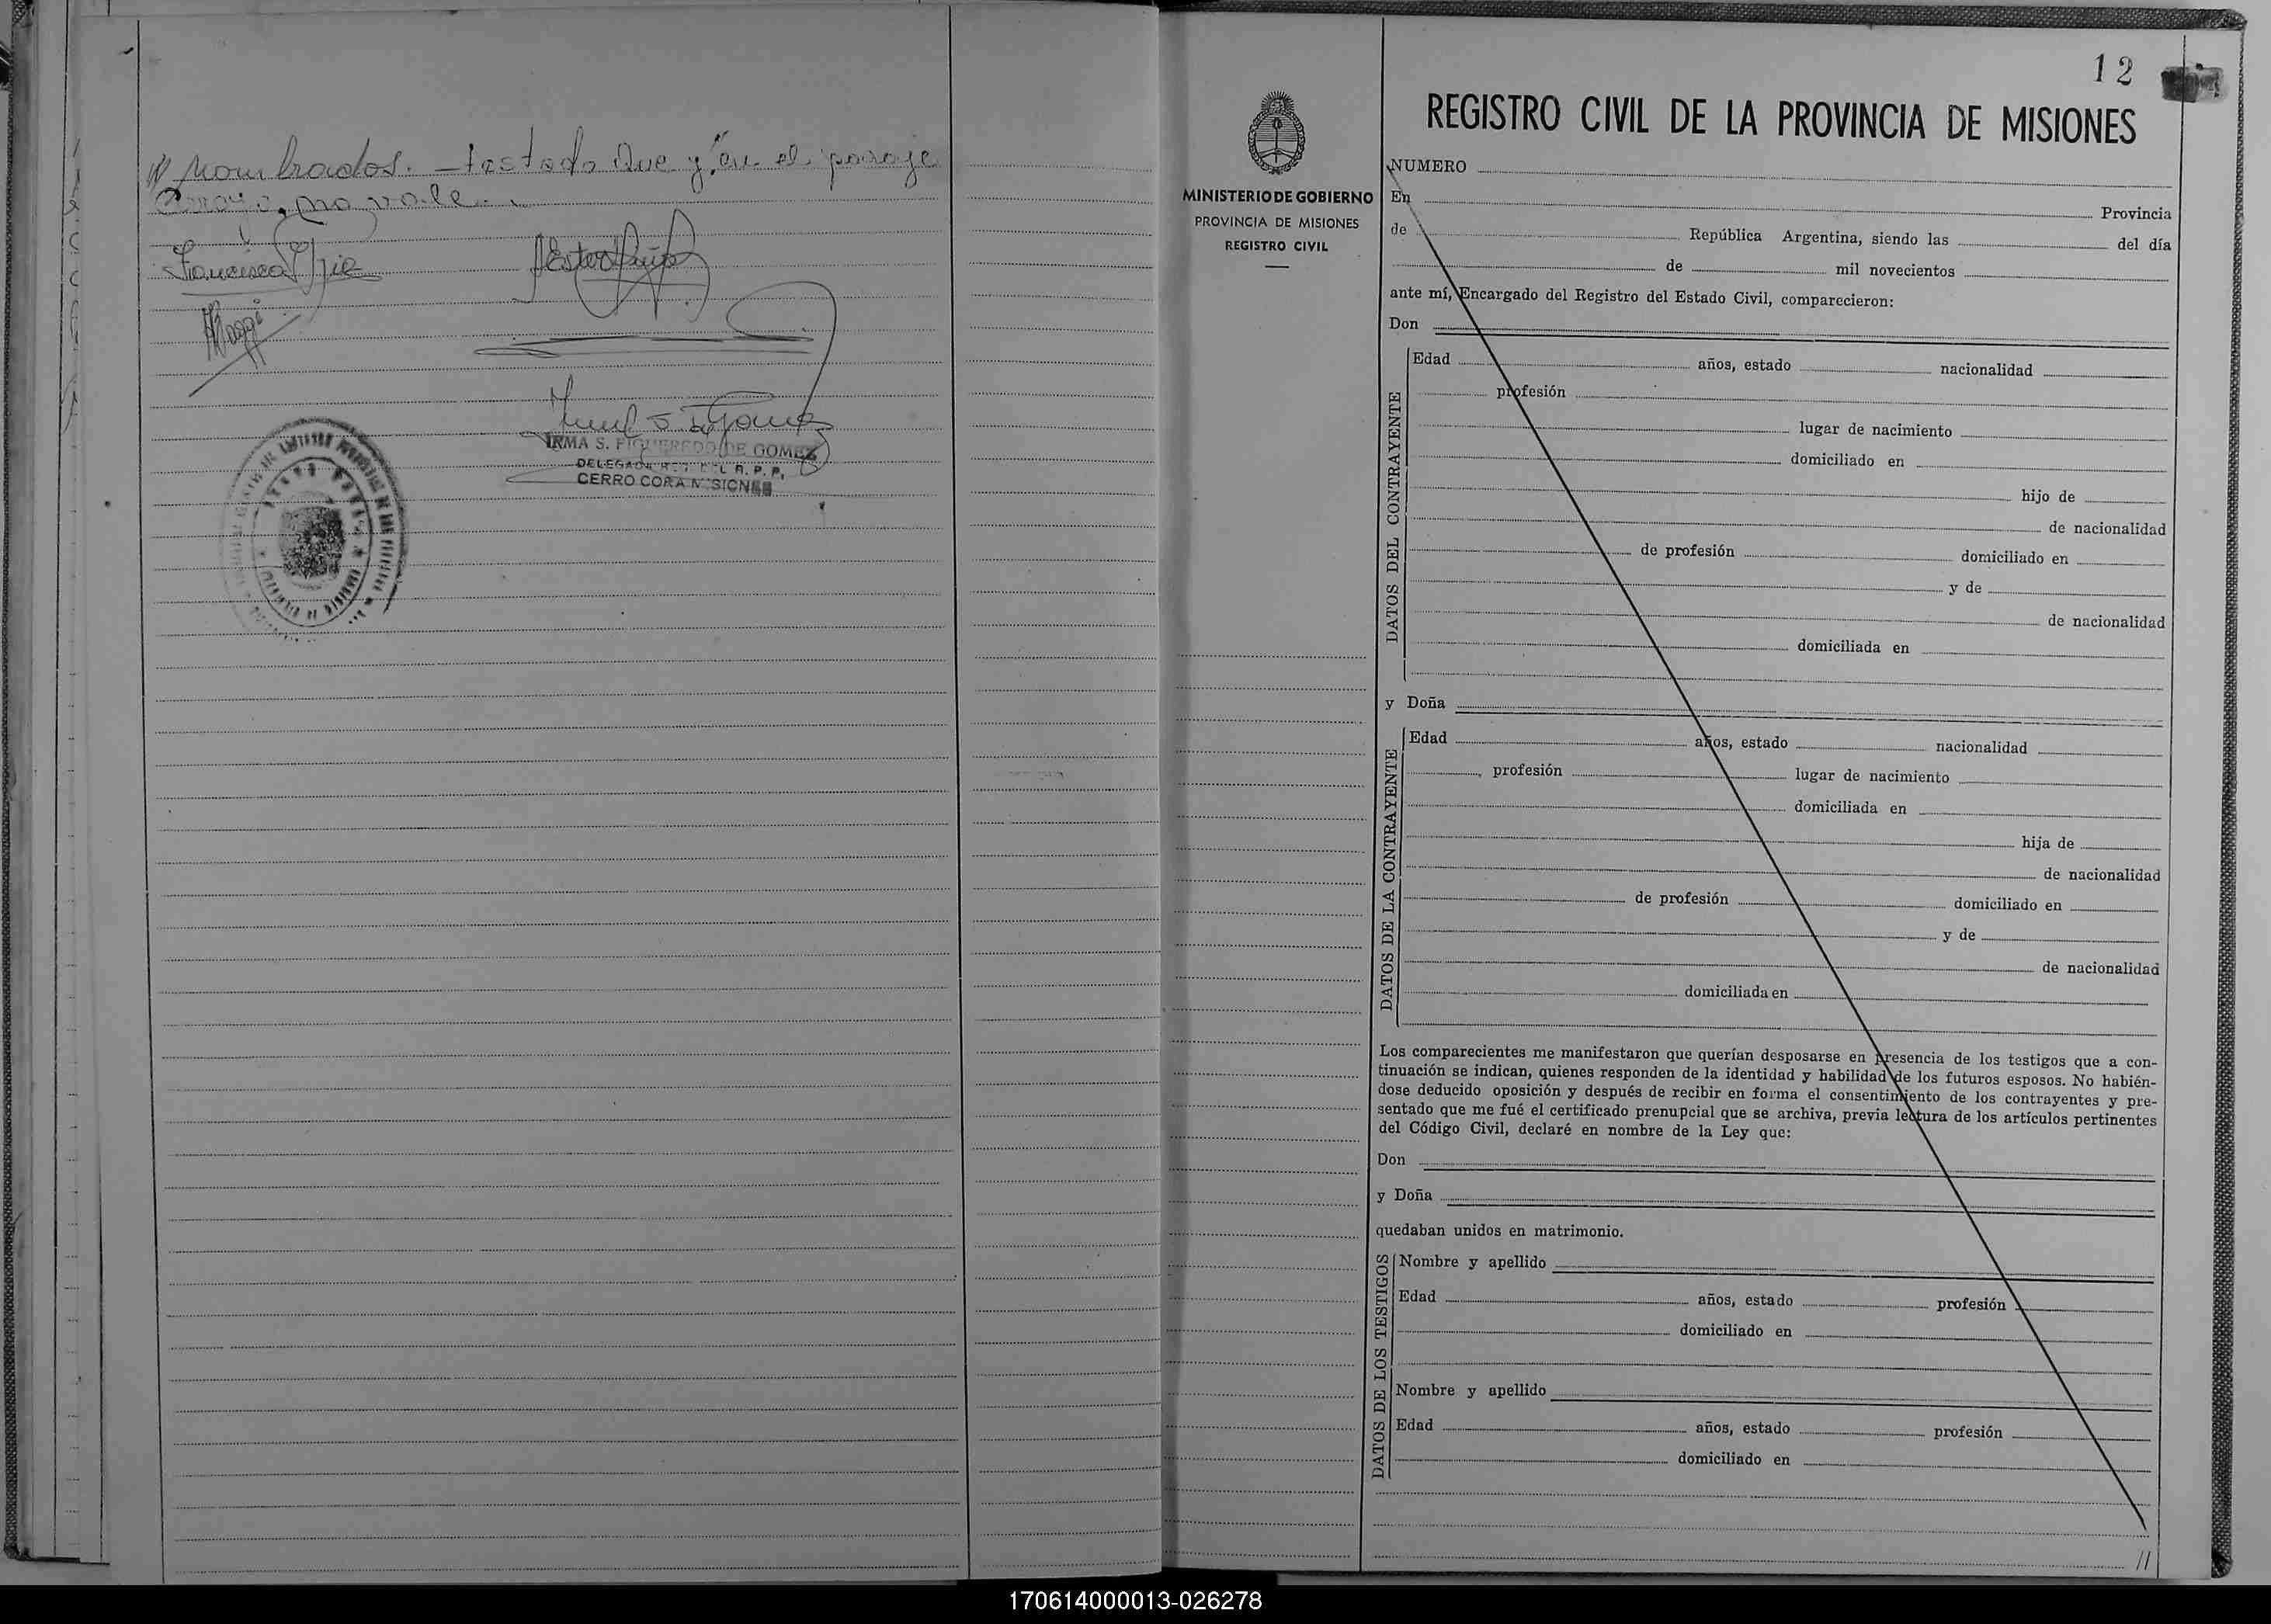 // Nombrados. — testado Que y, "en el paraje
no vale.
IRMA S. FIGUEREDO DE GOMEZ
CERRO CORA MISIONES
12
REGISTRO CIVIL DE LA PROVINCIA DE MISIONES
MINISTERIO DE GOBIERNO
PROVINCIA DE MISIONES
REGISTRO CIVIL
NUMERO
En Provincia
de República Argentina, siendo las del día
de mil novecientos
ante mí, Encargado del Registro del Estado Civil, comparecieron:
Don
DATOS DEL CONTRAYENTE
Edad años, estado nacionalidad
profesión
lugar de nacimiento
domiciliado en
hijo de
de nacionalidad
de profesión domiciliado en
y de
de nacionalidad
domiciliada en
y Doña
DATOS DE LA CONTRAYENTE
Edad años, estado nacionalidad
profesión lugar de nacimiento
domiciliada en
hija de
de nacionalidad
de profesión domiciliado en
y de
de nacionalidad
domiciliada en
Los comparecientes me manifestaron que querían desposarse en presencia de los testigos que a con-
tinuación se indican, quienes responden de la identidad y habilidad de los futuros esposos. No habién-
dose deducido oposición y después de recibir en forma el consentimiento de los contrayentes y pre-
sentado que me fué el certificado prenupcial que se archiva, previa lectura de los artículos pertinentes
del Código Civil, declaré en nombre de la Ley que:
Don
y Doña
quedaban unidos en matrimonio.
DATOS DE LOS TESTIGOS
Nombre y apellido
Edad años, estado profesión
domiciliado en
Nombre y apellido
Edad años, estado profesión
domiciliado en
//
170614000013-026278